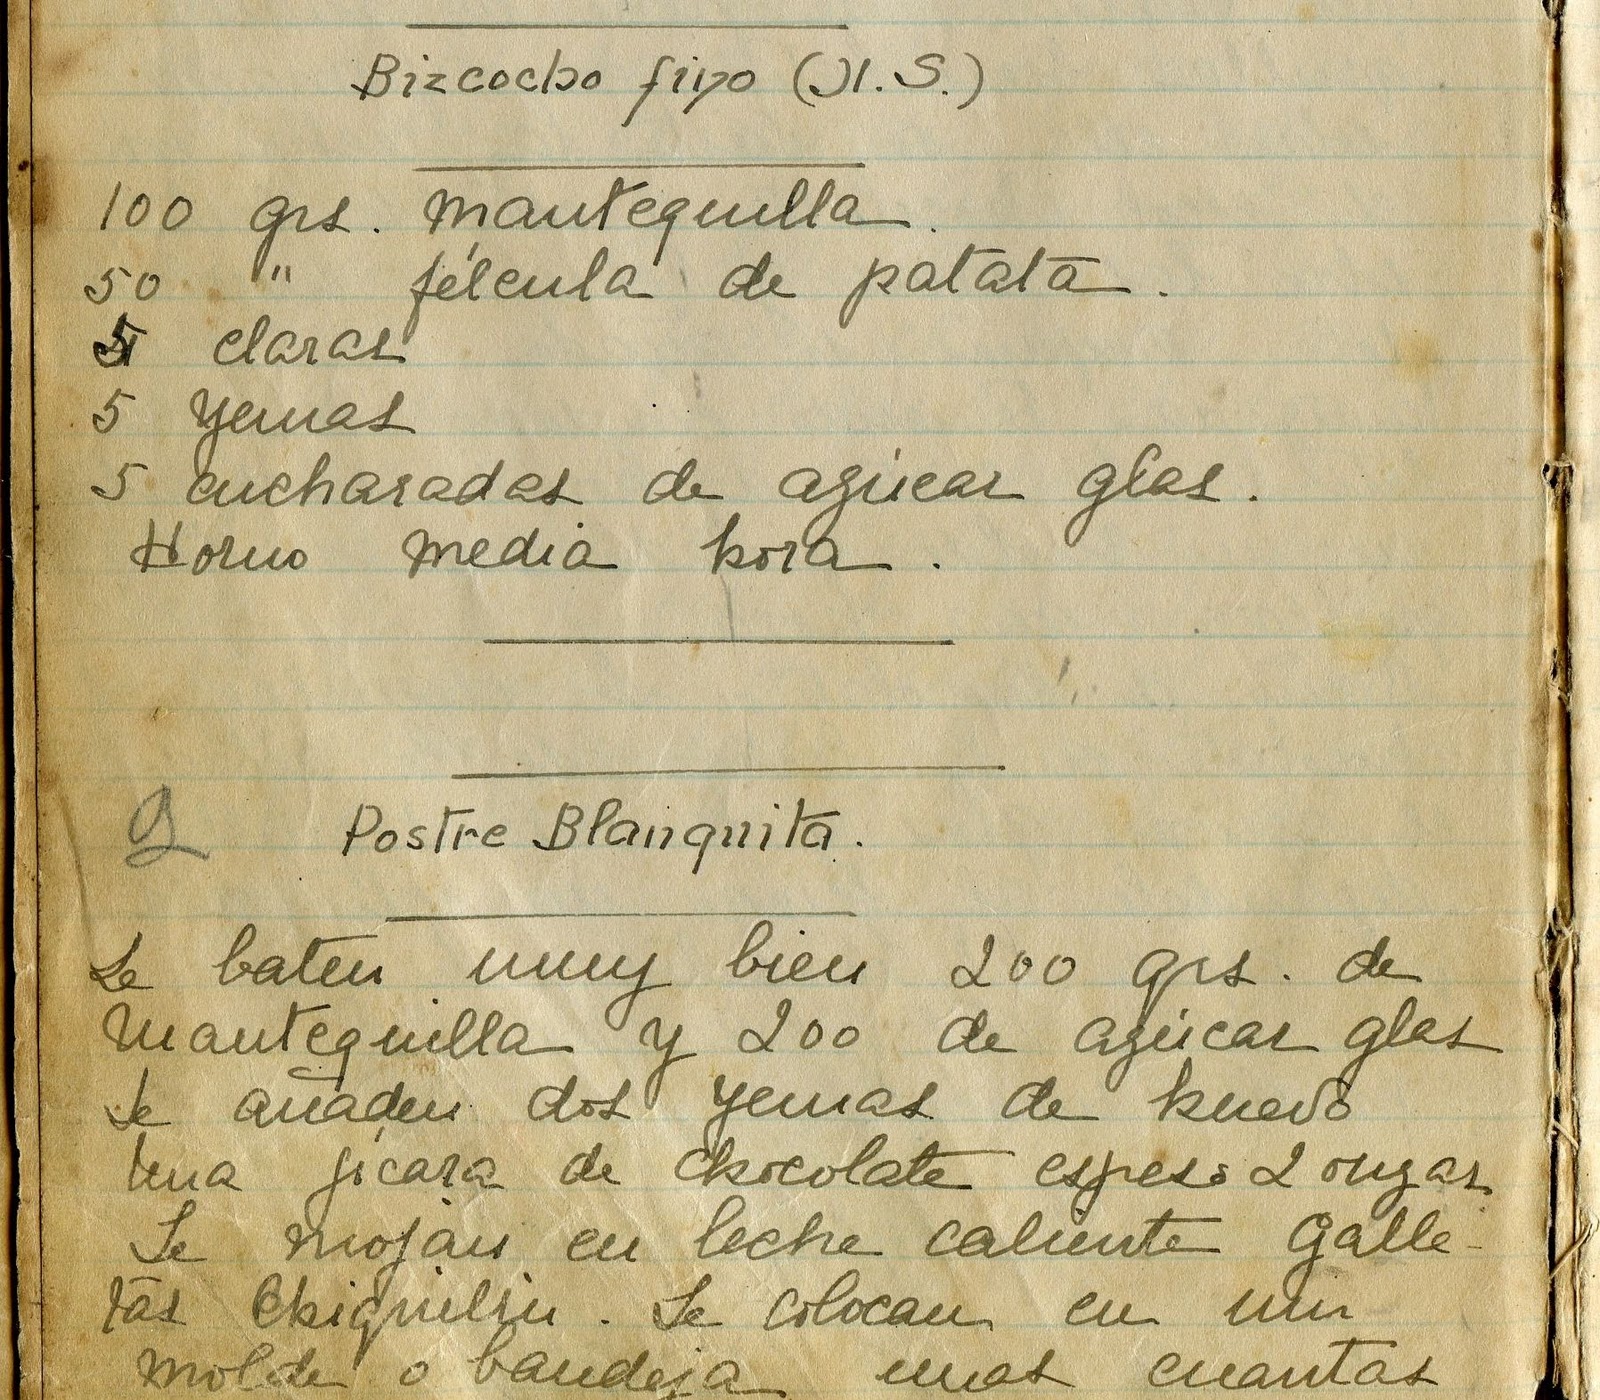 Bizcocho fino (M. S.)
100 grs. mantequilla.
50 " félcula de patata.
5 claras
5 yemas
5 cucharadas de azúcar glas.
Horno media hora.
Postre Blanquita.
Se baten muy bien 200 grs. de
mantequilla y 200 de azúcar glas
Se añaden dos yemas de huevo
una jícara de chocolate espeso 2 onzas
Se mojan en leche caliente Galle-
tas Chiquilin. Se colocan en un
molde o bandeja unas cuantas